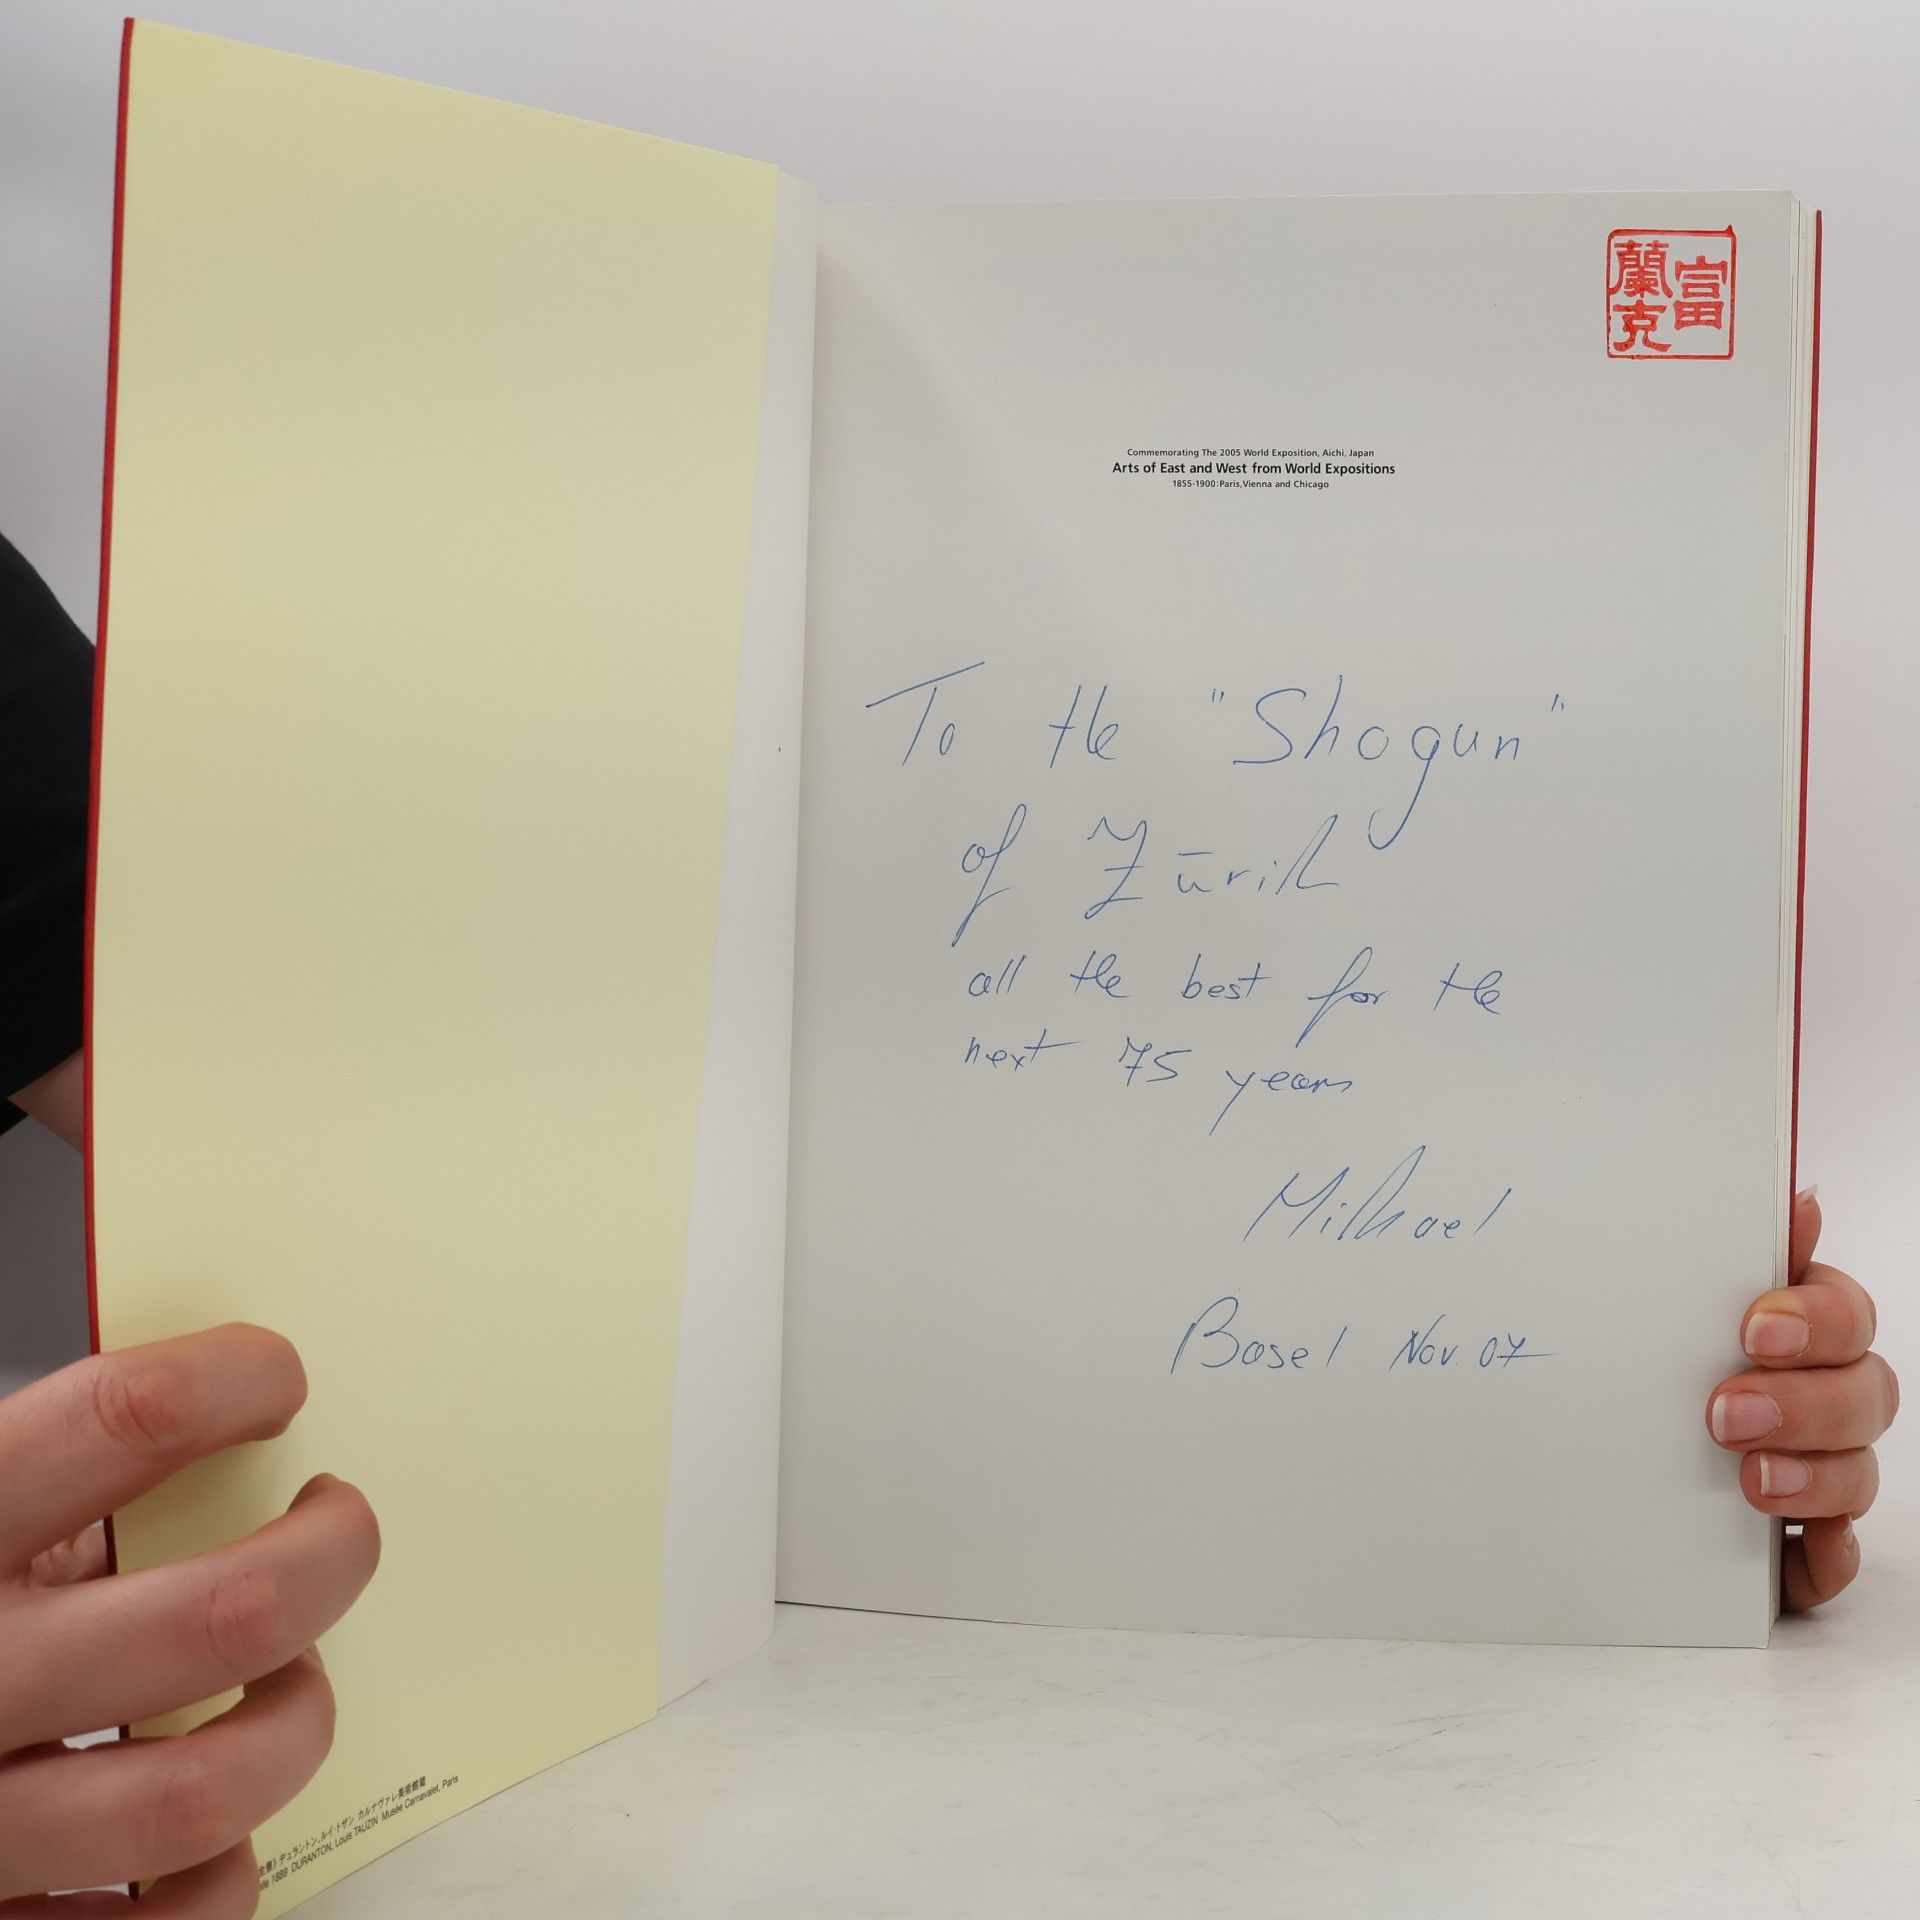 全景》デュラントン、ルイ・トザン カルナヴァレ美術館蔵
1889 DURANTON, Louis TAUZIN Musée Carnavalet, Paris
富
蘭克
Commemorating The 2005 World Exposition, Aichi, Japan
Arts of East and West from World Expositions
1855-1900:Paris,Vienna and Chicago
To the "Shogun"
of Zürich
all the best for the
next 75 years
Michael
Basel Nov. 07